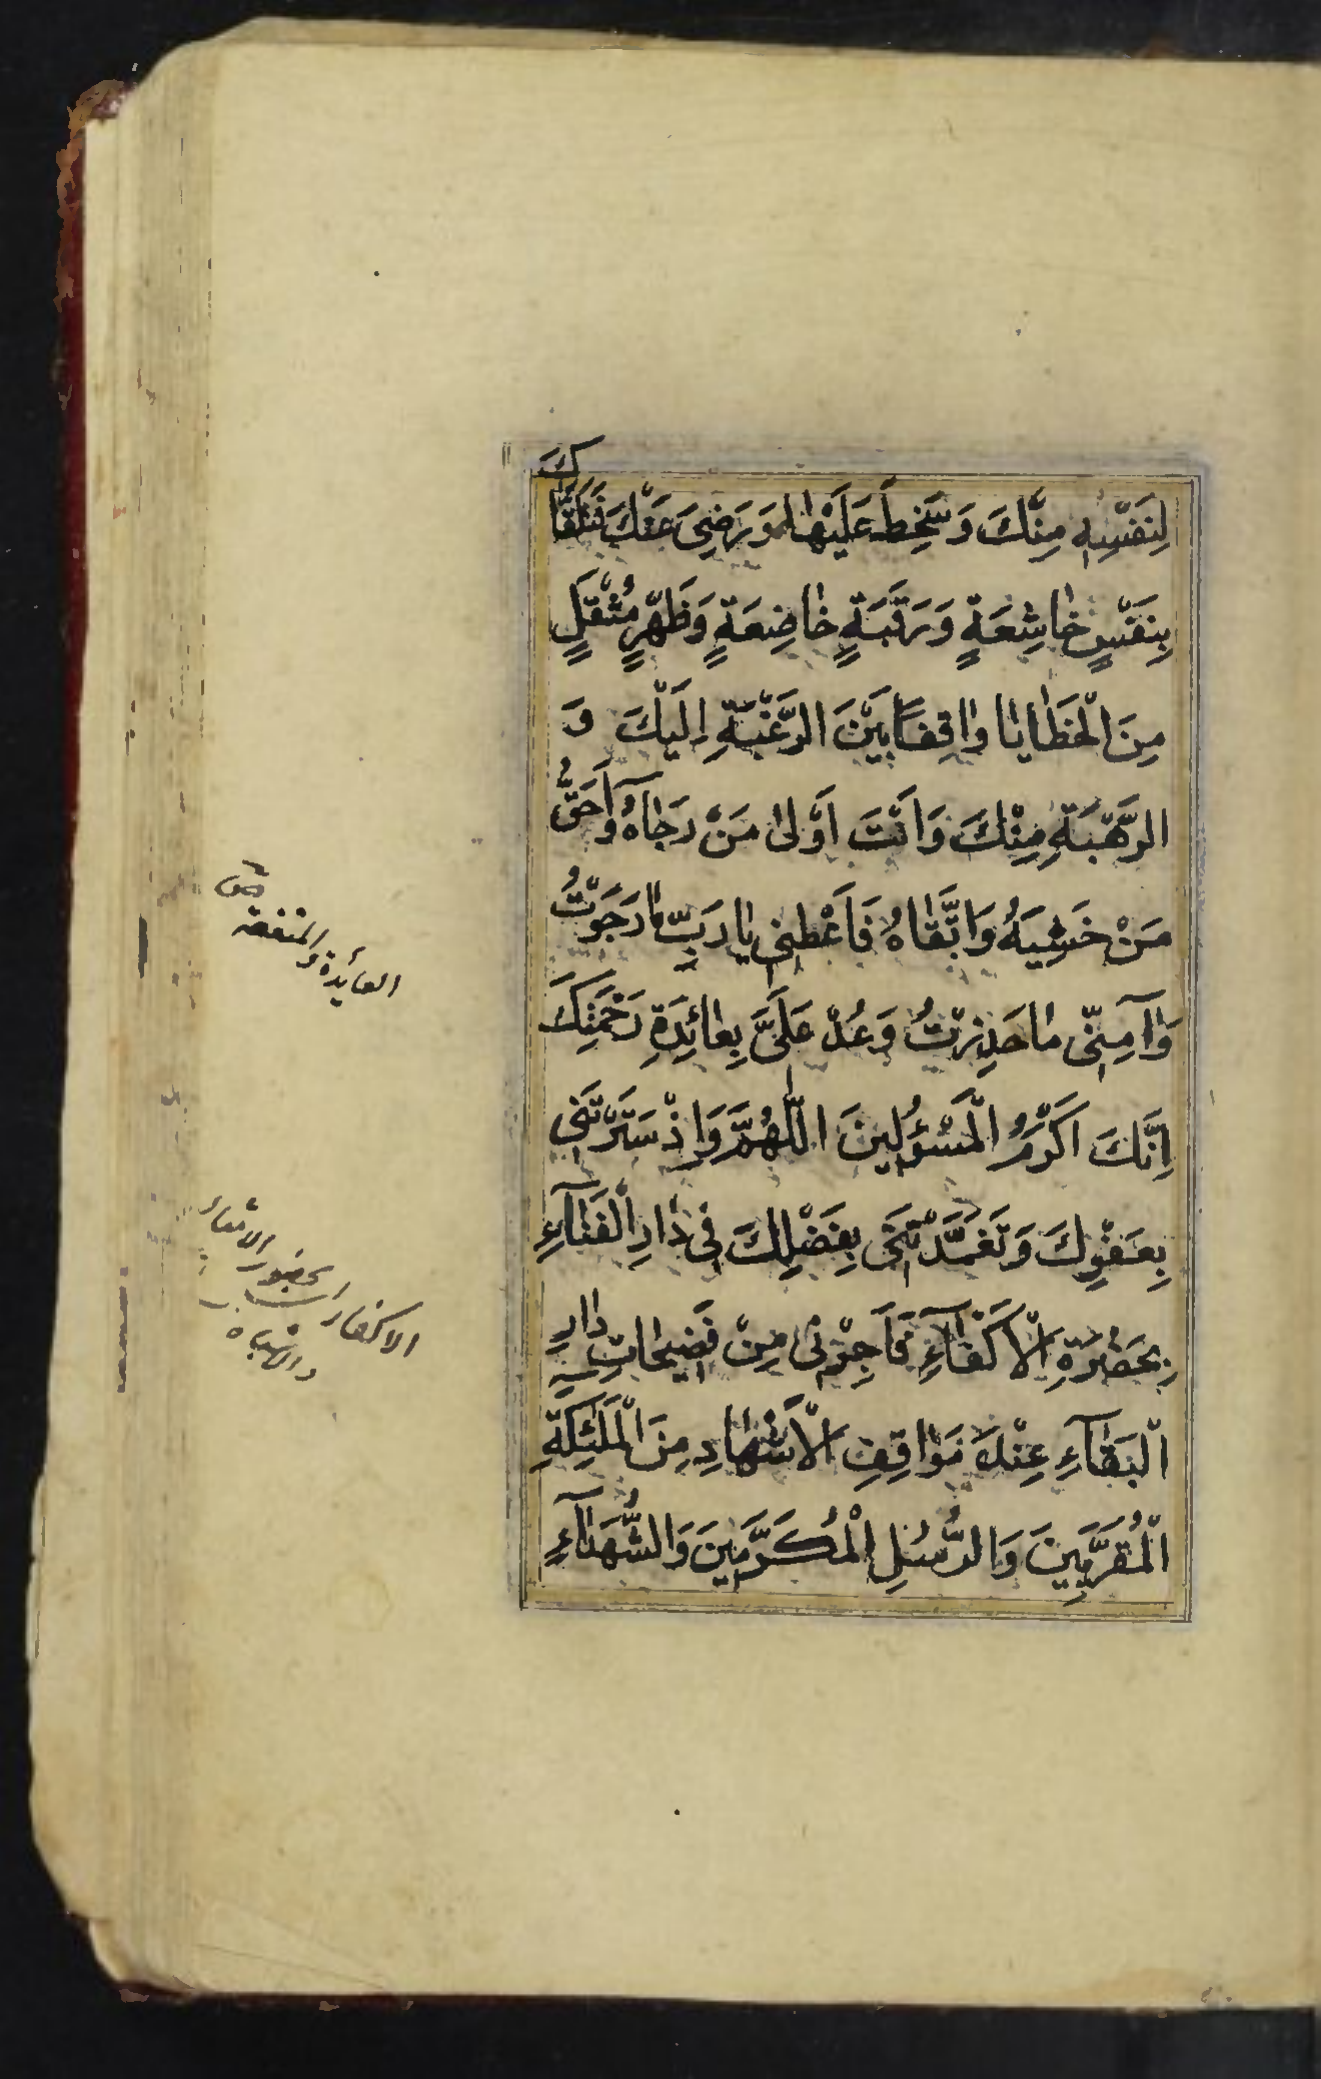 لِنَفْسِهِ مِنْكَ وَسَخِطَ عَلَيْهَا وَرَضِىَ عَنْكَ فَتَلَقَّاكَ
بِنَفْسٍ خَاشِعَةٍ وَرَقَبَةٍ خَاضِعَةٍ وَظَهْرٍ مُثْقَلٍ
مِنَ الْخَطَايَا وَاقِفًا بَيْنَ الرَّغْبَةِ اِلَيْكَ وَ
الرَّهْبَةِ مِنْكَ وَاَنْتَ اَوْلىٰ مَنْ رَجَاهُ وَاَحَقُّ
مَنْ خَشِيَهُ وَاتَّقَاهُ فَاَعْطِنِى يَا رَبِّ مَا رَجَوْتُ
وَآمِنِّى مَا حَذِرْتُ وَعُدْ عَلَىَّ بِعَائِدَةِ رَحْمَتِكَ
اِنَّكَ اَكْرَمُ الْمَسْؤُلِينَ اللّٰهُمَّ وَاِذْ سَتَرْتَنِى
بِعَفْوِكَ وَتَغَمَّدْتَنِى بِفَضْلِكَ فِى دَارِ الْفَنَآءِ
بِحَضْرَةِ الْاَكْفَآءِ فَاَجِرْنِى مِنْ فَضِيحَاتِ دَارِ
الْبَقَآءِ عِنْدَ مَوَاقِفِ الْاَشْهَادِ مِنَ الْمَلٰئِكَةِ
الْمُقَرَّبِينَ وَالرُّسُلِ الْمُكَرَّمِينَ وَالشُّهَدَآءِ
العايدة والمنفعة
الاكفاء بحضور